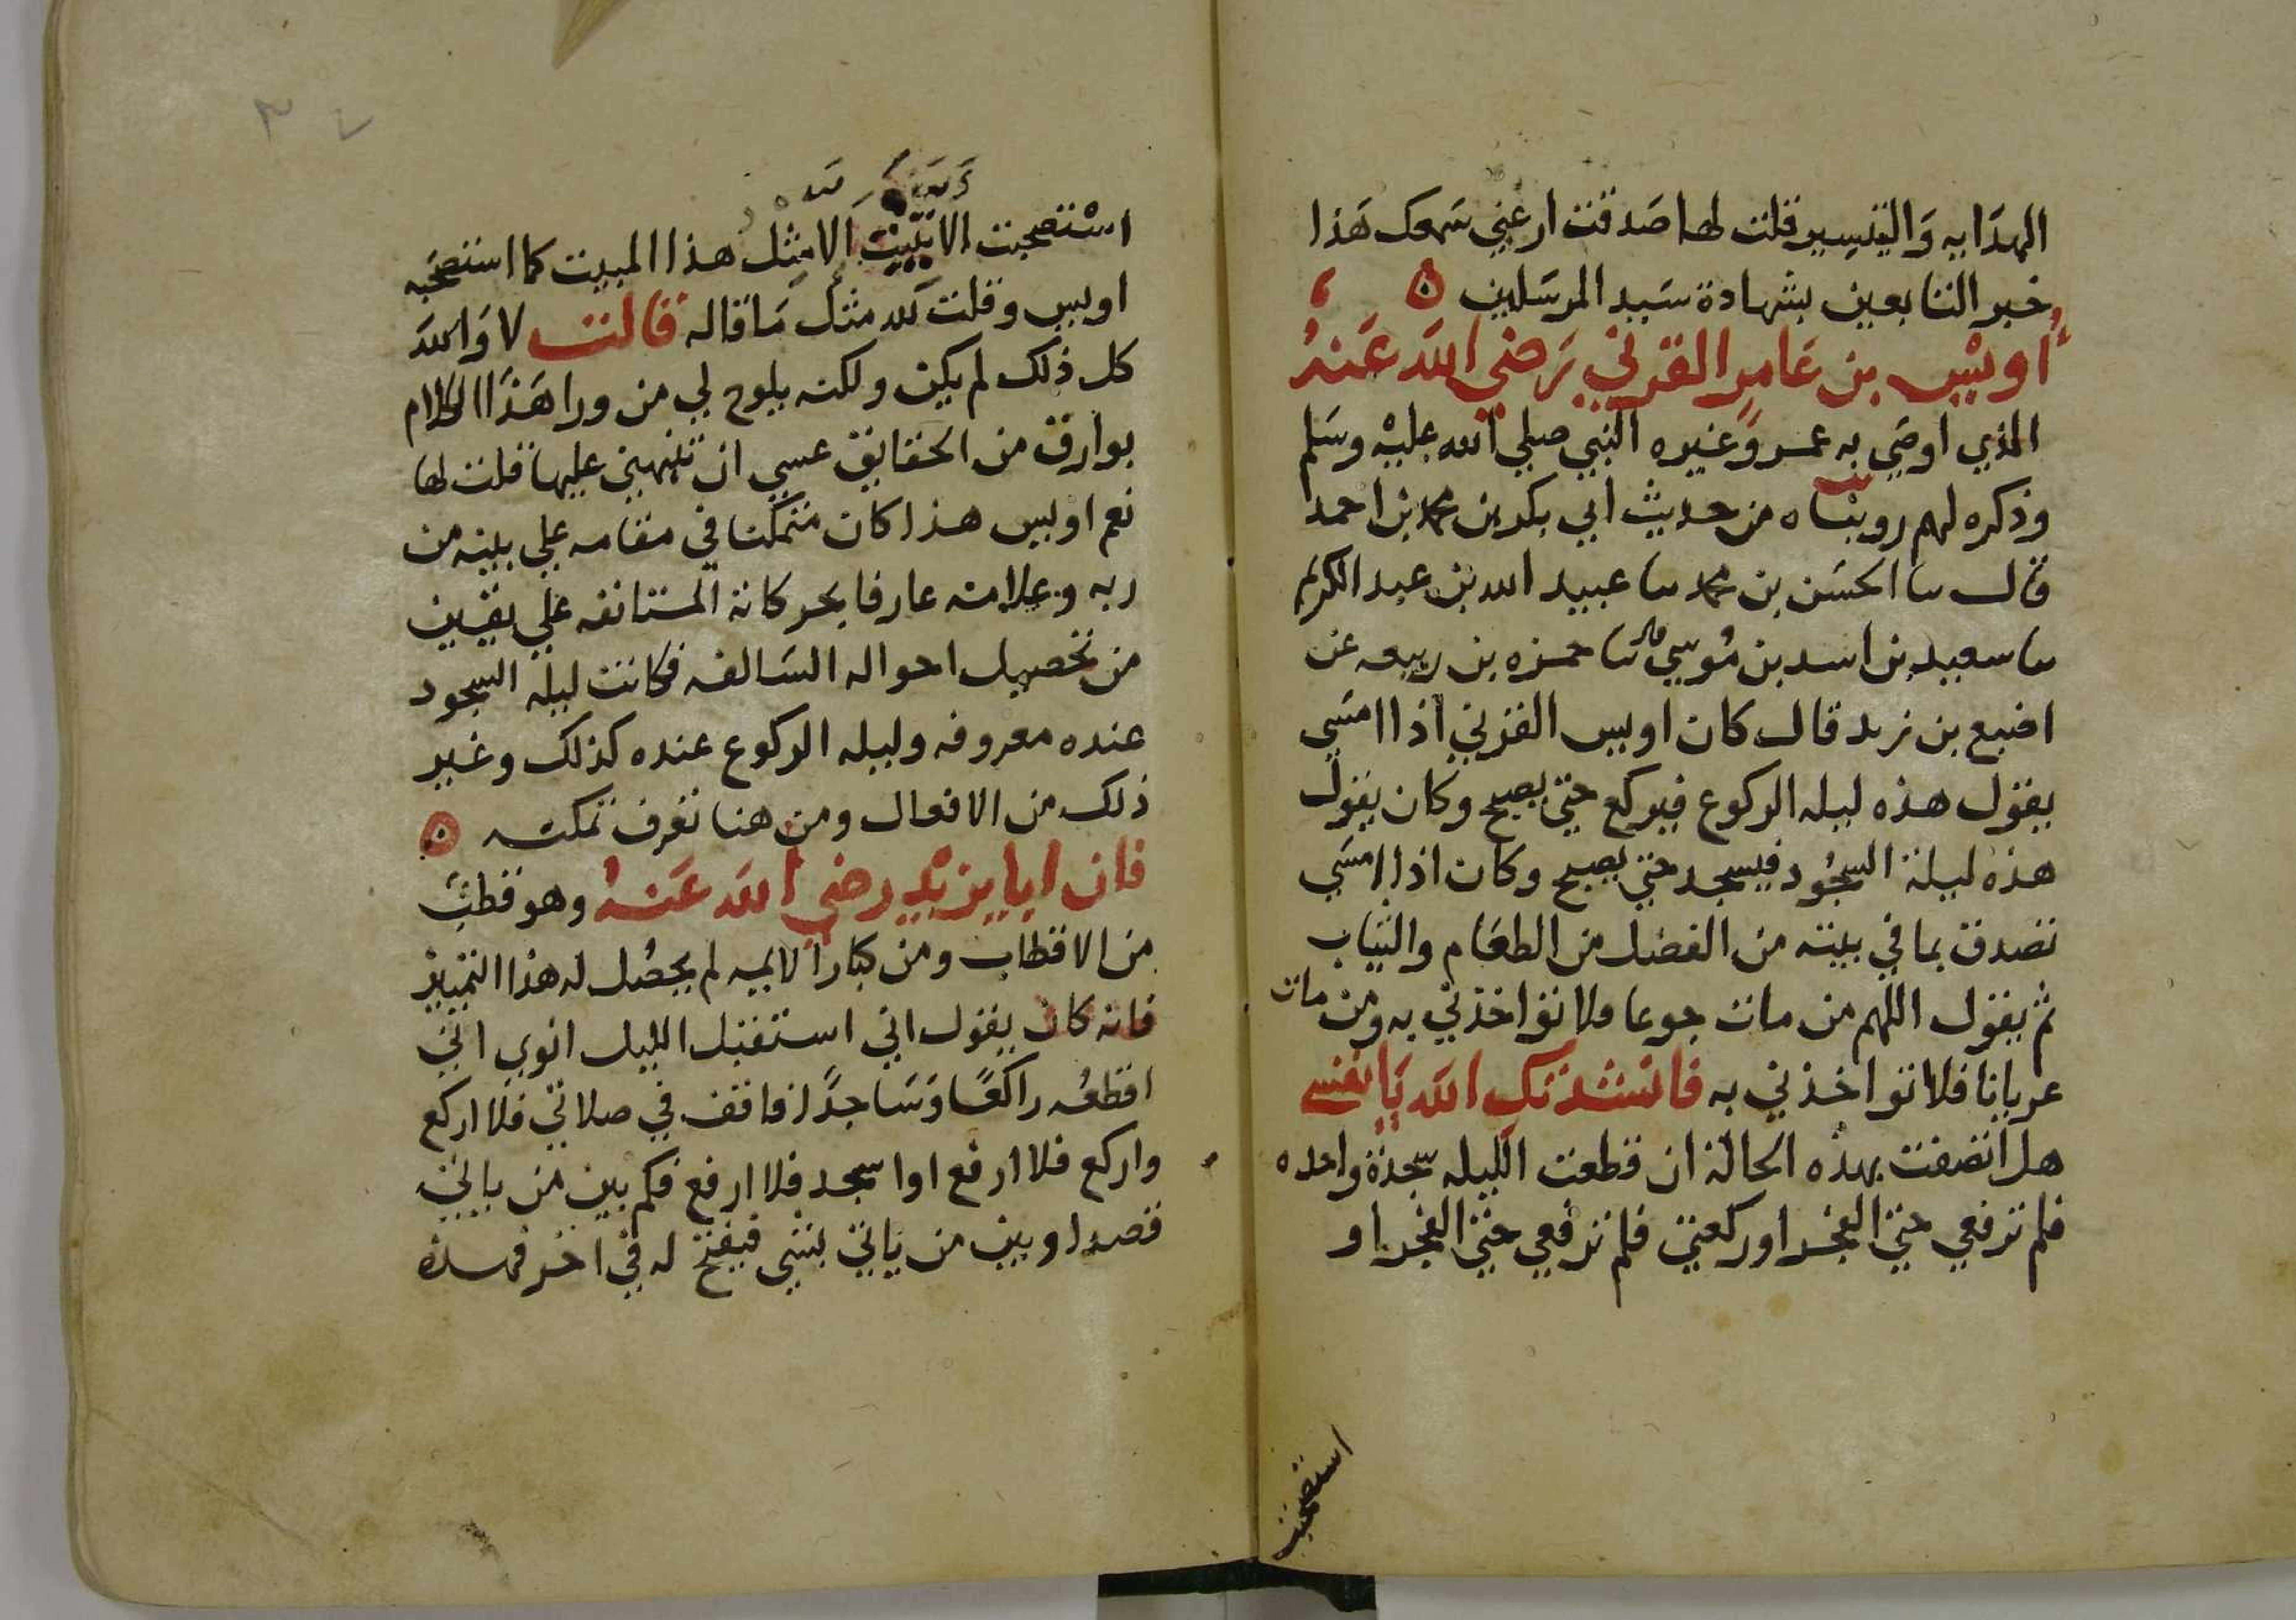 الهدايه وَالتيسير قلت لها صَدقت ارعني سَمعك هَذا
خير التابعين بشهادة سَيد المرسَلين ٥
أويْس بن عَامرٍ القرني رَضي اللهَ عَنهُ
الذي اوصَي به عمر وغيره النبي صلي الله عليْه وسَلم
وذكره لهم رويناه من حديث ابي بكر بن محمد بن احمد
قال سا الحسَن بن محمد سا عبيد الله بن عبد الكريم
سا سعيد بن اسد بن مُوسي سا حمزه بن ربيعه عن
اصبع بن زيد قال كان اويس القرني اذا امسَي
يقول هذه ليله الركوع فيركع حتي يصبح وكان يقول
هذه ليلة السجُود فيسجد حتي يصبح وكان اذا امسَي
تصدق بما في بيته من الفضل من الطعَام والثيَاب
ثم يقول اللهم من مات جوعا فلا تواخذني به ومن مات
عريانا فلا تواخذني به فانشدتك اللهَ يَا نفسي
هل اتصفت بهذه الحالة ان قطعت الليله سجدة واحده
فلم ترفعي حتي الفجر اوركعتي فلم ترفعي حتي الفجر او
استصحبت
٣٧
اسْتصحبت الا مثل هذا المبيت كما استصحَبه
اويس وقلت لله مثل مَا قاله قالت لا وَاللهَ
كل ذلك لم يكن ولكنه يلوح لي من ورا هَذا الكلام
بوارق من الحقايق عسي ان تنبهني عليها قلت لها
نعم اويس هذا كان متمكنا في مقامه علي بينه من
ربه وعلامته عارفا بحركاته المستانفه علي يقين
من تحصيل احواله السَالفه فكانت ليله السجود
عنده معروفه وليله الركوع عنده كذلك وغير
ذلك من الافعال ومن هنا تعرف تمكنه ٥
فان ابا يزيْد رضي اللهَ عَنهُ وهو قطبَ
من الاقطاب ومن كبار الايمه لم يحصُل له هذا التمييز
فانه كان يقول اني استقبل الليل انوي اني
اقطعُه راكعًا وَسَاجدًا فاقف في صلاتي فلا اركع
واركع فلا ارفع او اسجد فلا ارفع فكم بين من ياتي
قصدا وبين من يَاتي بشي فيفتح له في اخر فهذه